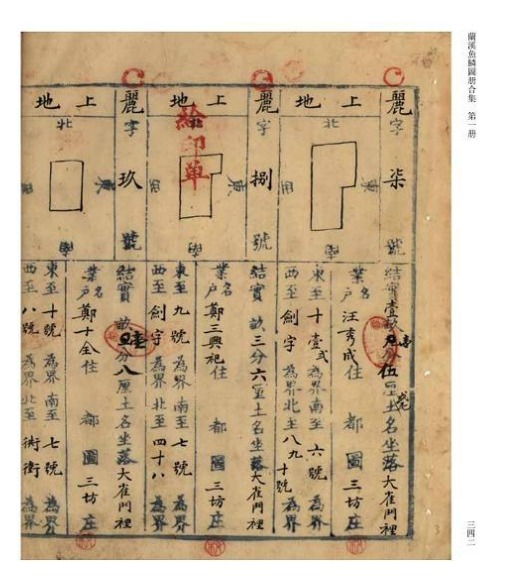 蘭溪魚鱗圖册合集 第一册
三四二
麗字柒號
上地
北
結實壹畝分伍厘土名坐落大雀門裡
業户名汪秀成住 都圖三坊庄
東至十壹弍為界南至六號為界
西至劍字為界北至八九十號為界
麗字捌號
上地
北
給印單
結實 畝三分六厘土名坐落大雀門裡
業户名鄭三興祀住 都圖三坊庄
東至九號為界南至七號為界
西至劍字為界北至四十八為界
麗字玖號
上地
北
結實 畝壹分八厘土名坐落大雀門裡
業户名鄭十全住 都圖三坊庄
東至十號為界南至七號為界
西至八號為界北至街衝為界